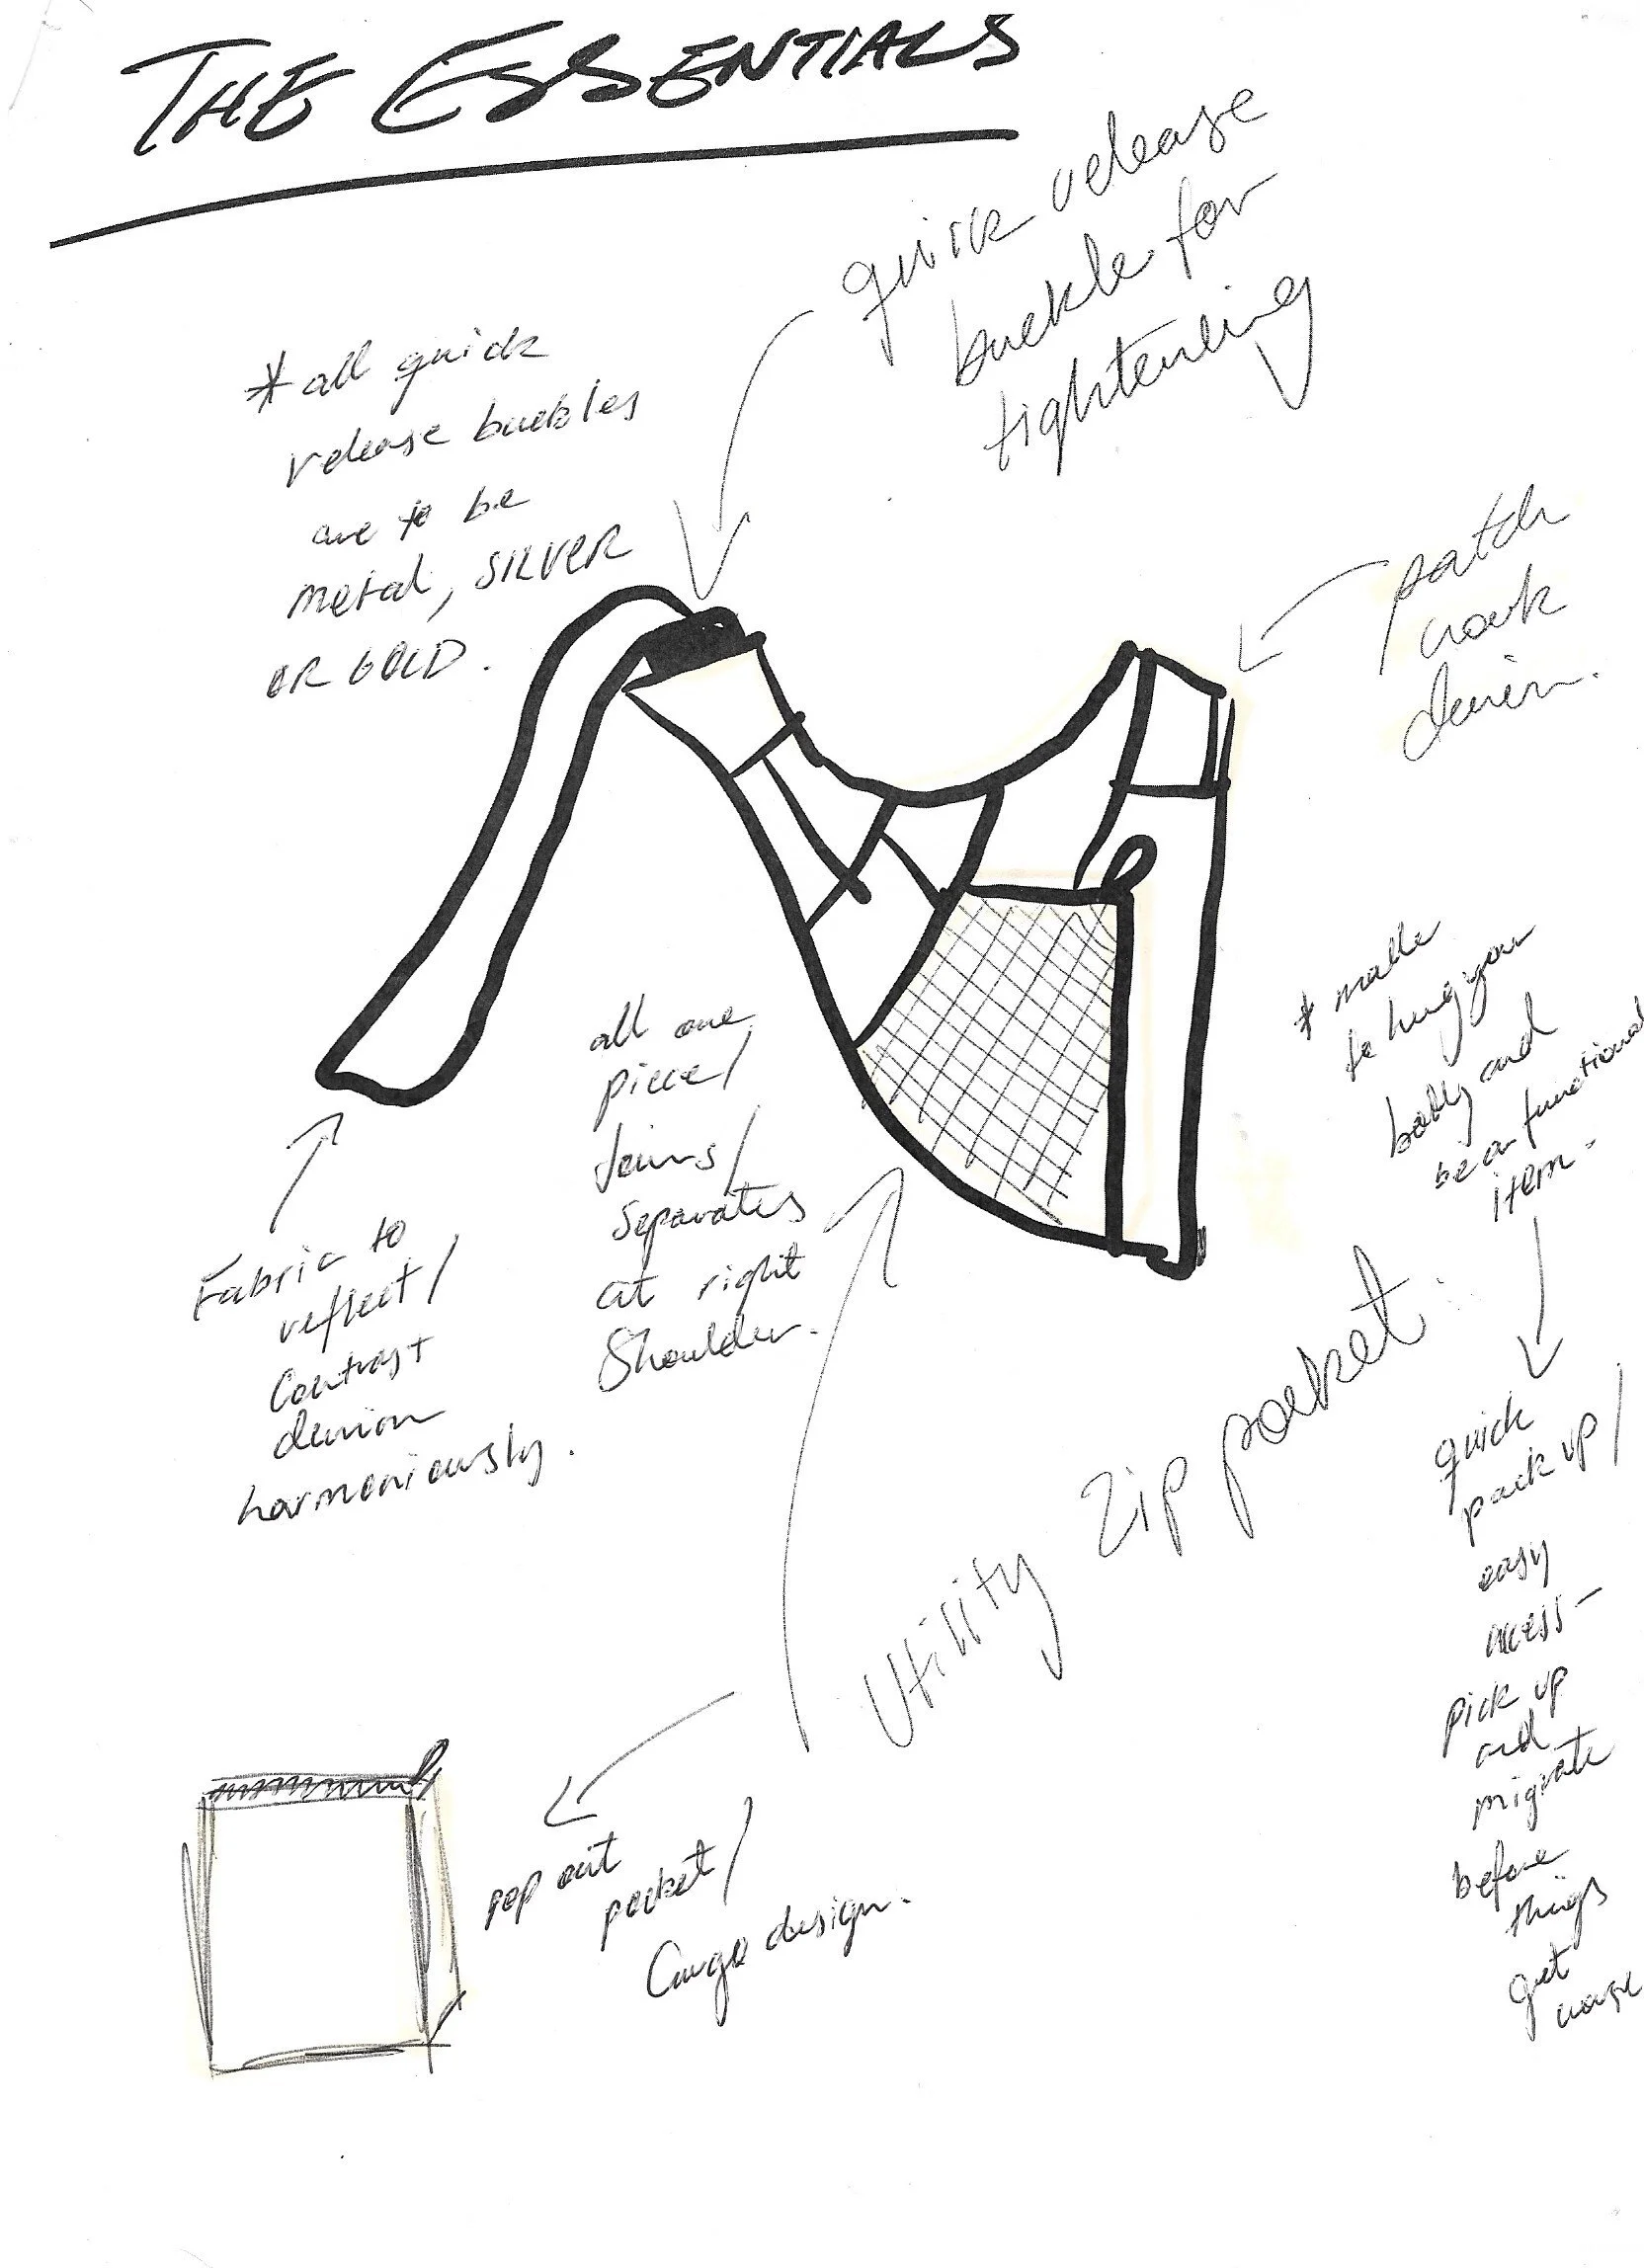 THE ESSENTIALS
quick release
buckle for
tightening
* all quick
release buckles
are to be
metal, SILVER
OR GOLD.
patch
work
denim.
* made
to hug your
body and
be a functional
item.
all one
piece/
joins/
separates
at right
Shoulder.
Fabric to
reflect/
Contrast
denim
harmoniously.
Utility Zip pocket.
quick
pack up/
easy
access -
pick up
and
migrate
before
things
get
worse
pop out
pocket/
Cargo design.